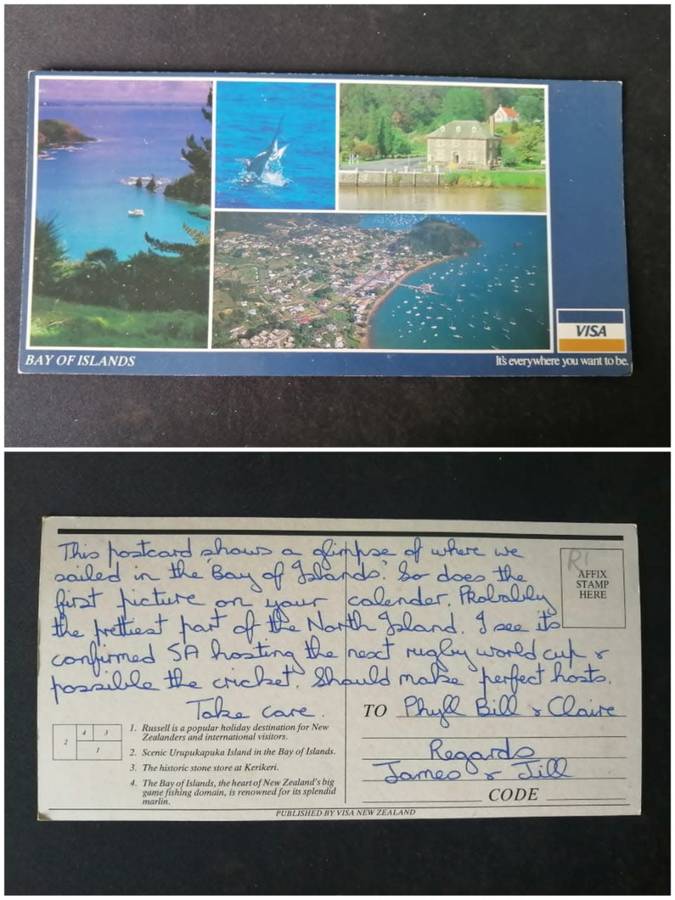 VISA
BAY OF ISLANDS
It's everywhere you want to be.
This postcard shows a glimpse of where we
sailed in the 'Bay of Islands'. So does the
first picture on your calender. Probably
the prettiest part of the North Island. I see its
confirmed SA hosting the next rugby world cup &
possible the cricket. Should make perfect hosts.
Take care.
R1
AFFIX
STAMP
HERE
TO Phyll Bill & Claire
Regards
James & Jill
CODE
2 4 3
1
1. Russell is a popular holiday destination for New
Zealanders and international visitors.
2. Scenic Urupukapuka Island in the Bay of Islands.
3. The historic stone store at Kerikeri.
4. The Bay of Islands, the heart of New Zealand's big
game fishing domain, is renowned for its splendid
marlin.
PUBLISHED BY VISA NEW ZEALAND